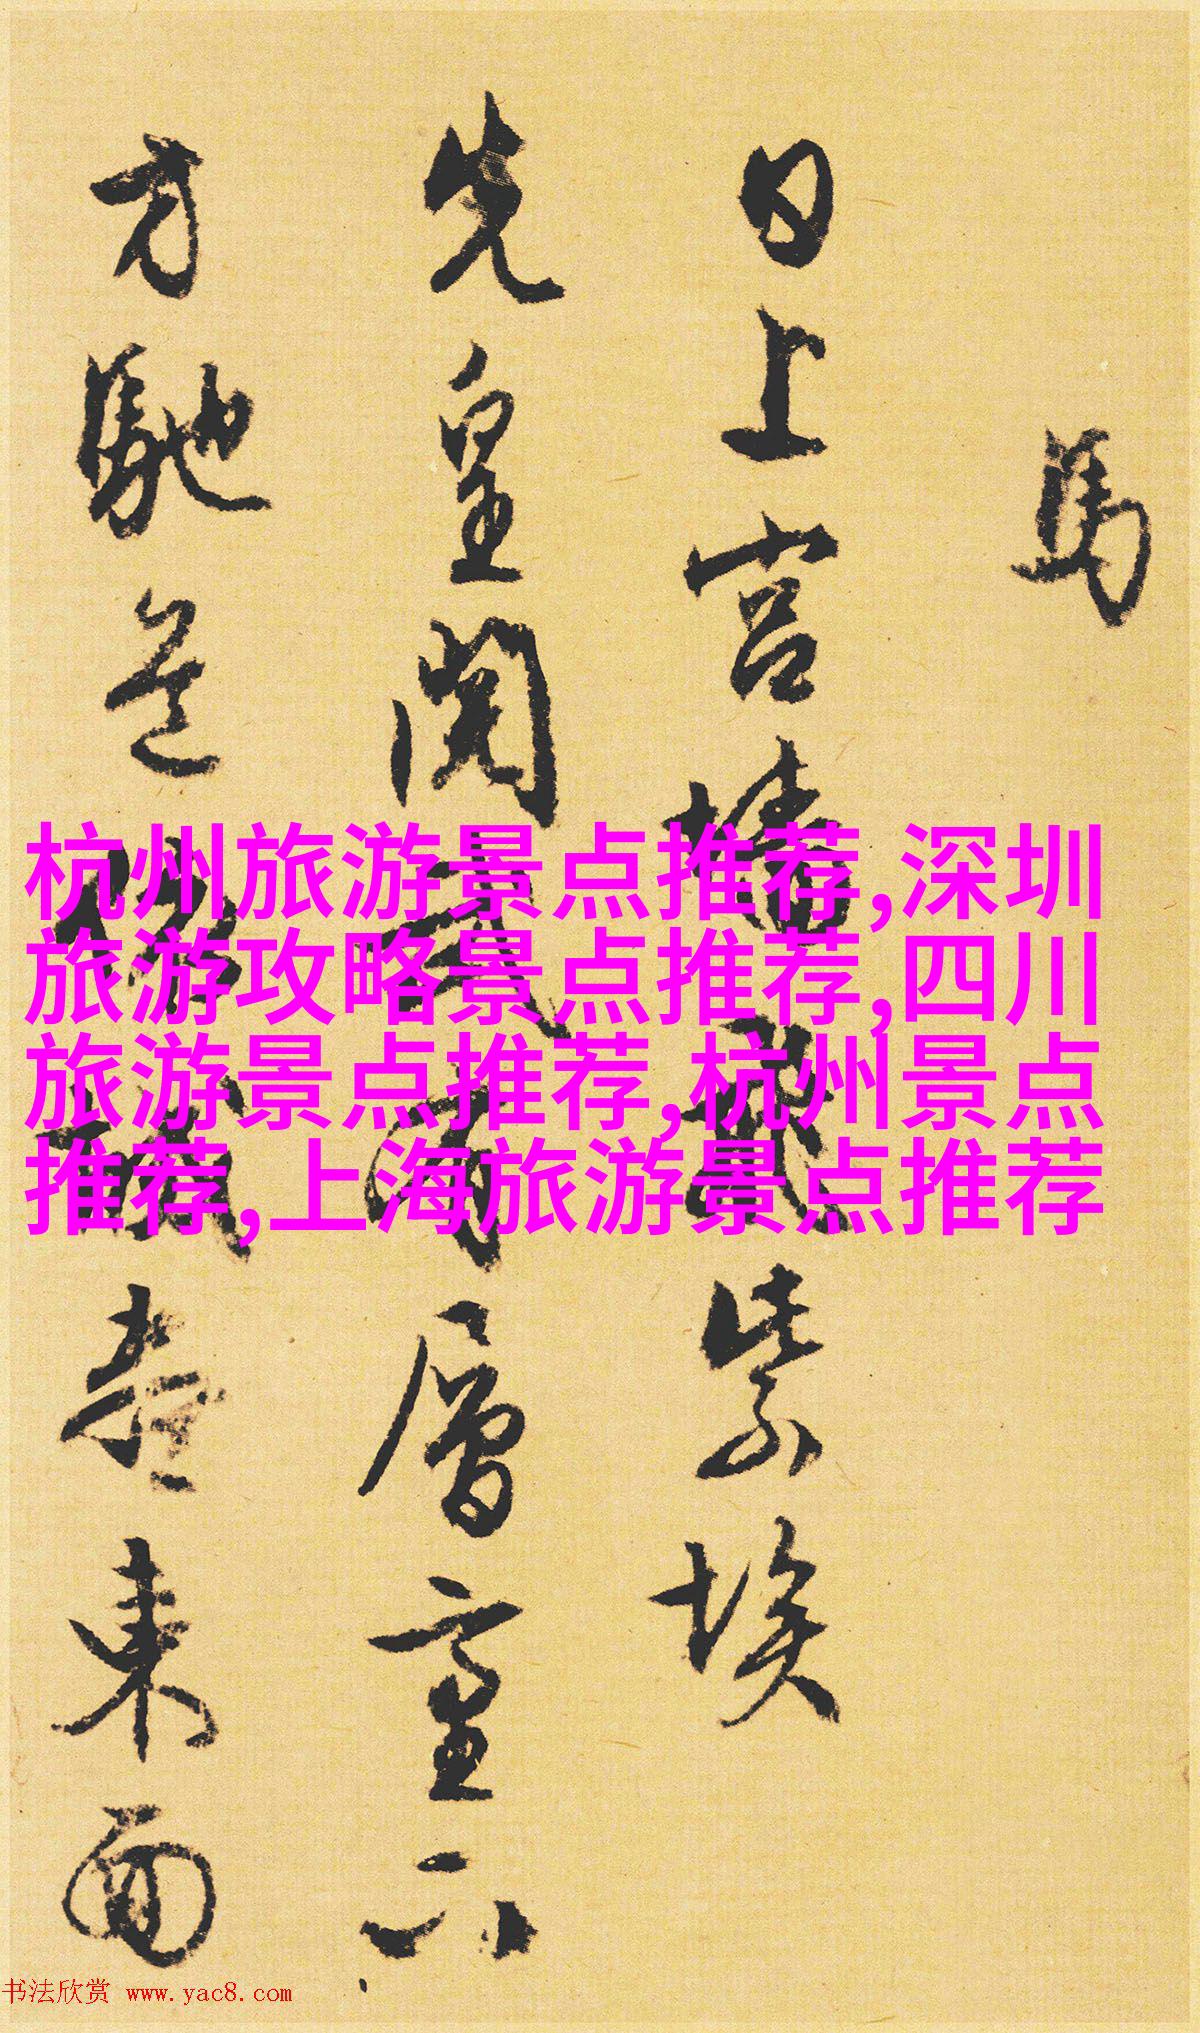 馬
日上宮墻
紫埃
先皇開
層臺六
方馳
盡東面
杭州旅游景点推荐,深圳
旅游攻略景点推荐,四川
旅游景点推荐,杭州景点
推荐,上海旅游景点推荐
书法欣赏 www.yac8.com